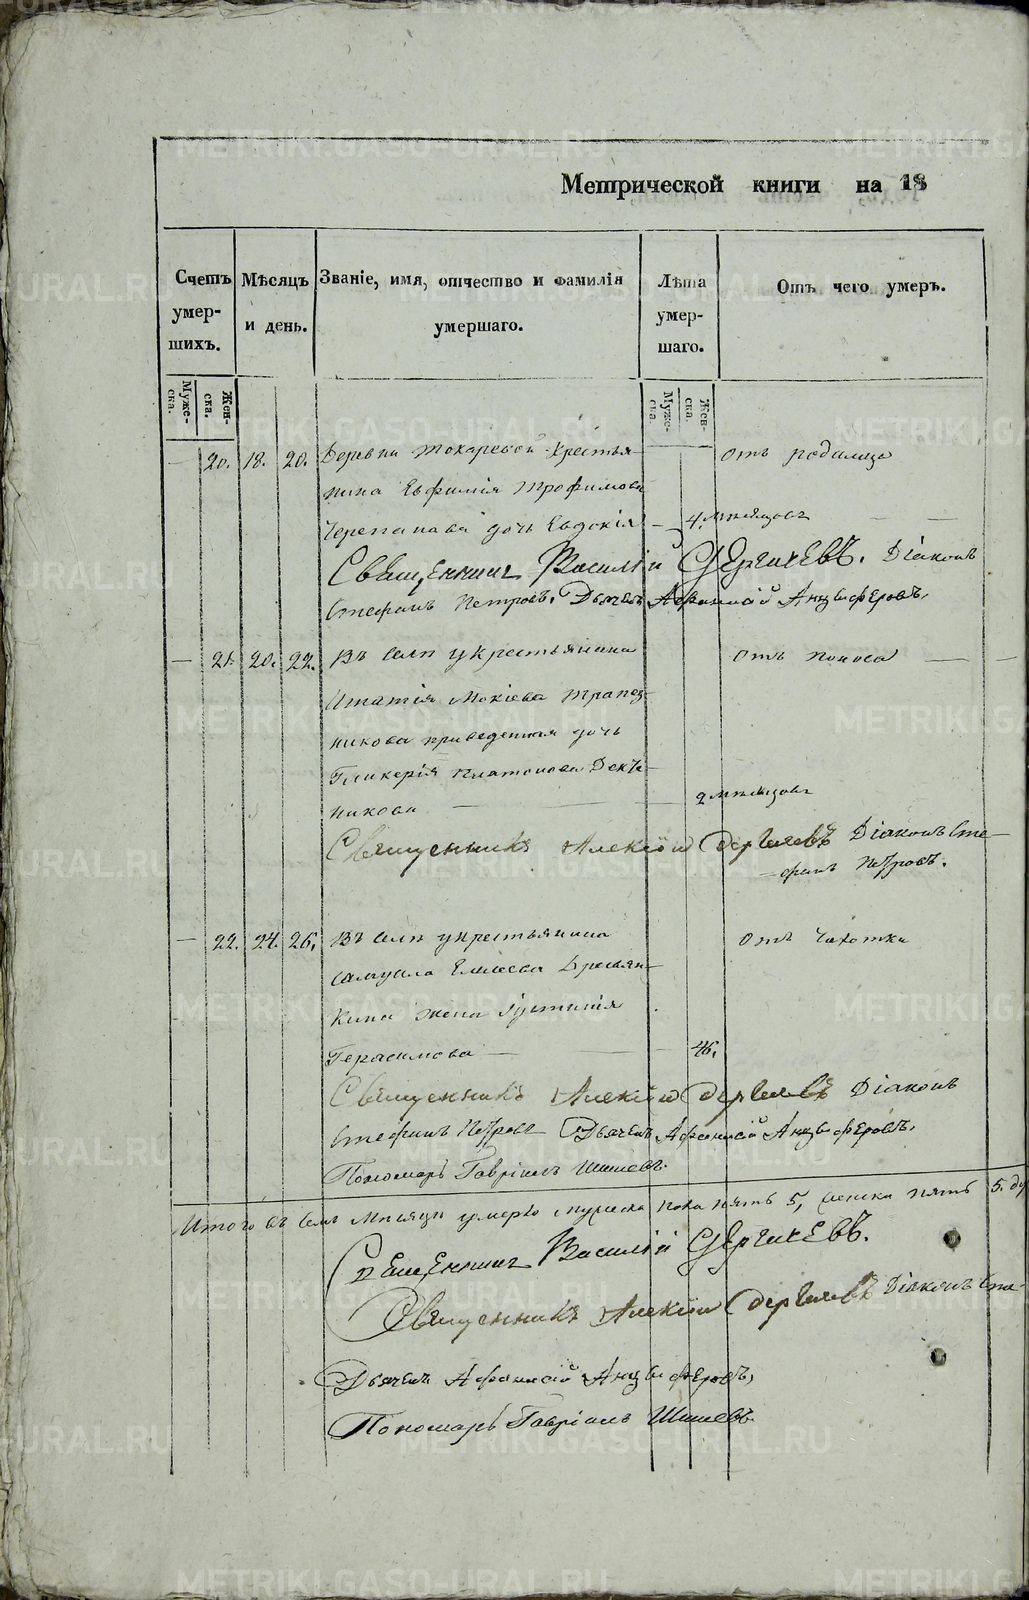 Метрической книги на 18
Счетъ умер-шихъ.
Мѣсяцъ и день.
Званіе, имя, отчество и фамилія умершаго.
Лѣта умер-шаго.
Отъ чего умеръ.
Муже-ска.
Жен-ска.
Муже-ска.
Жен-ска.
— 20. 18. 20. Деревни Токаревой крестья-
отъ родимца
нина Евфимія Трофимова
Черепанова дочь Евдокія — 4. мѣсяцовъ
Священникъ Василій Сергіевъ. Діаконъ
Стефанъ Петровъ. Дьячекъ Афанасій Анцыферовъ.
— 21. 20. 22. Въ селѣ у крестьянина
отъ поноса
Игнатія Мокіева Трапез-
никова приведенная дочь
Гликерія Платонова
никова — 2 мѣсяцовъ
Священникъ Алексій Сергіевъ Діаконъ Сте-
фанъ Петровъ.
— 22. 24. 26. Въ селѣ у крестьянина
отъ чахотки
Самуила Елисеева
кина жена Іустинія
Герасимова — 46.
Священникъ Алексій Сергіевъ Діаконъ
Стефанъ Петровъ Дьячекъ Афанасій Анцыферовъ.
Пономарь Гавріилъ Шишевъ.
Итого въ семъ мѣсяцѣ умерло мужеска пола пять 5, женска пять 5. ду
Священникъ Василій Сергіевъ.
Священникъ Алексій Сергіевъ Діаконъ Сте-
Дьячекъ Афанасій Анцыферовъ,
Пономарь Гавріилъ Шишевъ
METRIKI.GASO-URAL.RU